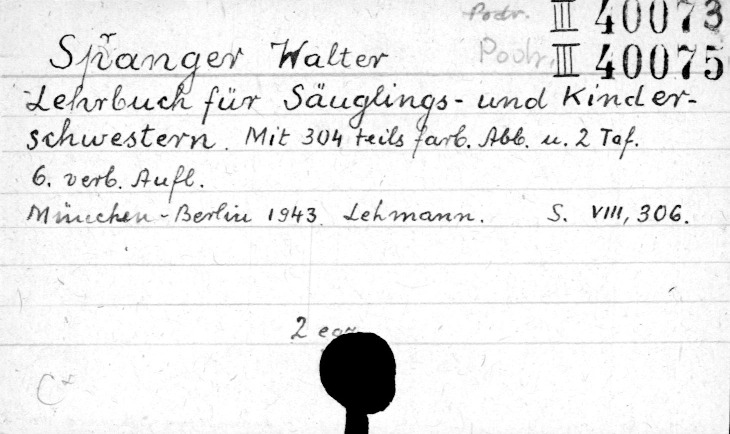 Podr. III 40073
Spranger Walter Podr. III 40075
Lehrbuch für Säuglings- und Kinder-
schwestern. Mit 304 teils farb. Abb. u. 2 Taf.
6. verb. Aufl.
München-Berlin 1943. Lehmann. S. VIII, 306.
2 egz
C*